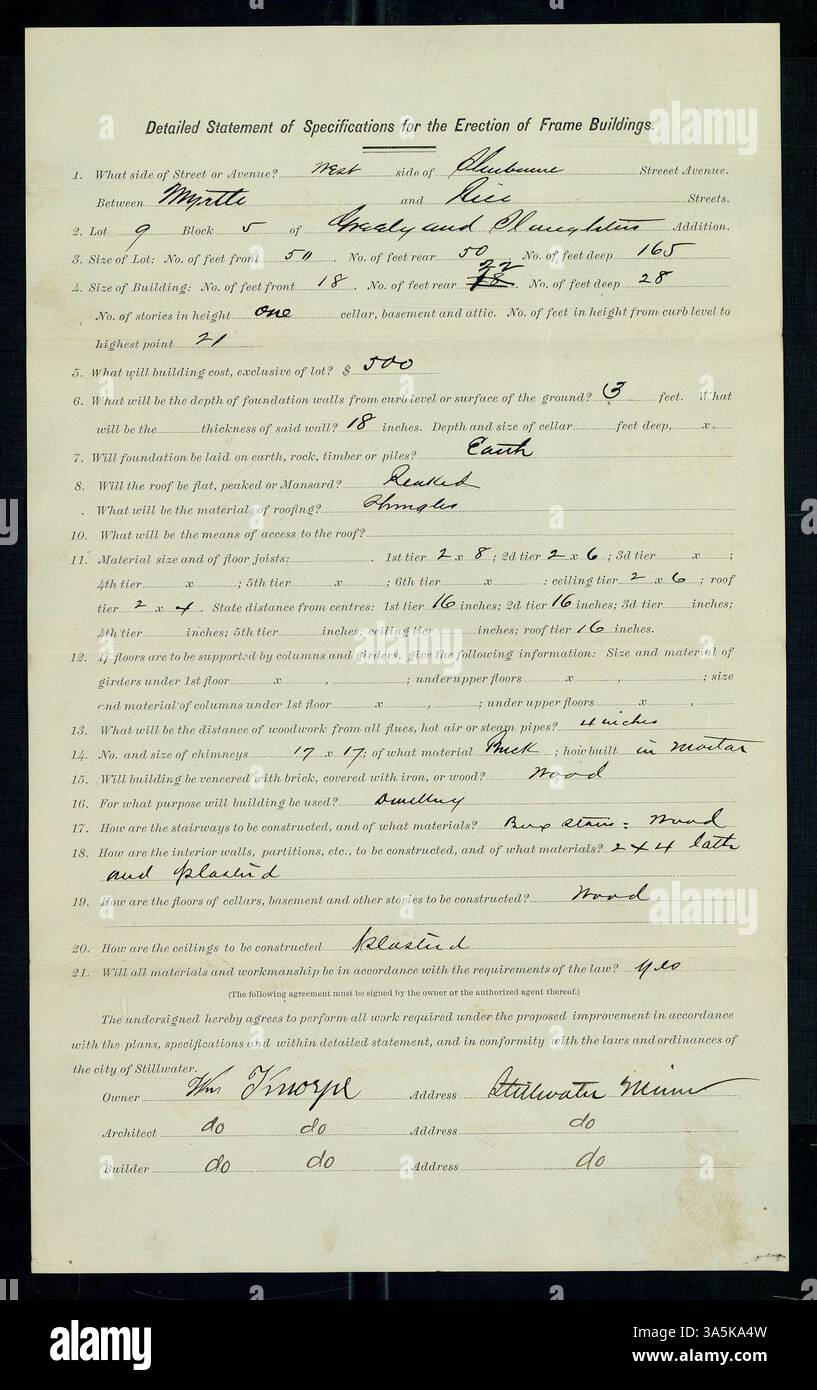 Detailed Statement of Specifications for the Erection of Frame Buildings.
1. What side of Street or Avenue? West side of Sherburne Streeet Avenue.
Between Myrtle and Rice Streets.
2. Lot 9 Block 5 of Greely and Slaughters Addition.
3. Size of Lot: No. of feet front 50 . No. of feet rear 50 No. of feet deep 165
22
4. Size of Building: No. of feet front 18 . No. of feet rear 18 . No. of feet deep 28
No. of stories in height one cellar, basement and attic. No. of feet in height from curb level to
highest point 21
5. What will building cost, exclusive of lot? $ 500
6. What will be the depth of foundation walls from curb level or surface of the ground? 3 feet. What
will be the thickness of said wall? 18 inches. Depth and size of cellar feet deep, x.
7. Will foundation be laid on earth, rock, timber or piles? Earth
8. Will the roof be flat, peaked or Mansard? Peaked
. What will be the materials of roofing? Shingles
10. What will be the means of access to the roof?
11. Material size and of floor joists: . 1st tier 2 x 8 ; 2d tier 2 x 6 ; 3d tier x ;
4th tier x ; 5th tier x ; 6th tier x : ceiling tier 2 x 6 ; roof
tier 2 x 4 . State distance from centres: 1st tier 16 inches; 2d tier 16 inches; 3d tier inches;
4th tier inches; 5th tier inches; ceiling tier inches; roof tier 16 inches.
12. If floors are to be supported by columns and girders, give the following information: Size and material of
girders under 1st floor x , ; under upper floors x , ; size
and material of columns under 1st floor x , ; under upper floors x ,
13. What will be the distance of woodwork from all flues, hot air or steam pipes? 4 inches
14. No. and size of chimneys 17 x 17 ; of what material Brick ; how built in Mortar
15. Will building be veneered with brick, covered with iron, or wood? Wood
16. For what purpose will building be used? Dwelling
17. How are the stairways to be constructed, and of what materials? Box stairs = Wood
18. How are the interior walls, partitions, etc., to be constructed, and of what materials? 2 x 4 lath
and plasterd
19. How are the floors of cellars, basement and other stories to be constructed? Wood
20. How are the ceilings to be constructed plasterd
21. Will all materials and workmanship be in accordance with the requirements of the law? yes
(The following agreement must be signed by the owner or the authorized agent thereof.)
The undersigned hereby agrees to perform all work required under the proposed improvement in accordance
with the plans, specifications and within detailed statement, and in conformity with the laws and ordinances of
the city of Stillwater.
Owner Wm Knorpe Address Stillwater Minn
Architect do do Address do
Builder do do Address do
alamy
Image ID: 3A5KA4W
www.alamy.com